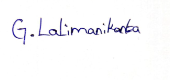 G. Lalimanikanta